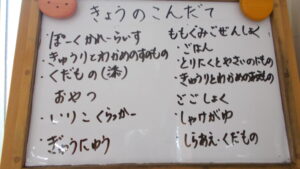 きょうのこんだて
・ぽーくかれーらいす
・きゅうりとわかめのすのもの
・くだもの(漆)
おやつ
・いりこくらっかー
・ぎゅうにゅう
ももぐみごぜんしょく
・ごはん
・とりにくとやさいのにもの
・きゅうりとわかめのあえもの
ごごしょく
・しゃけがゆ
・しらあえ・くだもの